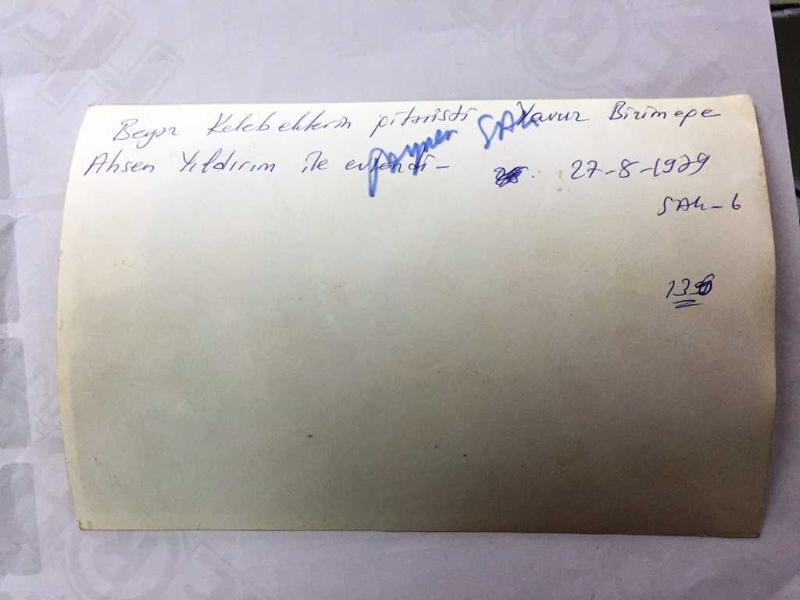 Beyaz Kelebeklerin gitaristi Yavuz Birimepe
Ahsen Yıldırım ile evlendi- 27-8-1979
SAL
SAL-6